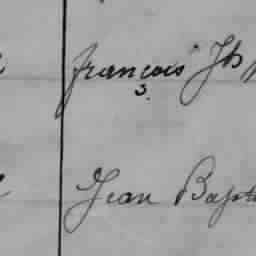 françois Jh
Jean Bapt